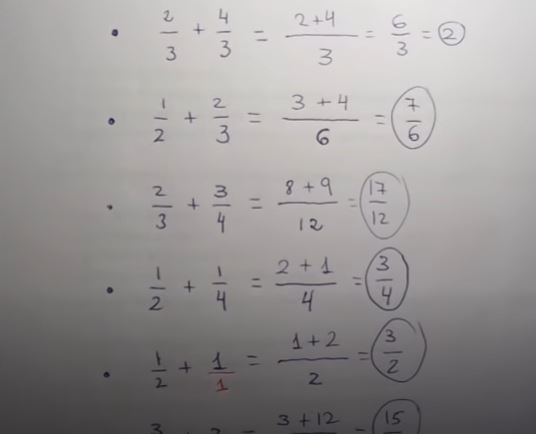 • 2/3 + 4/3 = (2+4)/3 = 6/3 = 2
• 1/2 + 2/3 = (3+4)/6 = 7/6
• 2/3 + 3/4 = (8+9)/12 = 17/12
• 1/2 + 1/4 = (2+1)/4 = 3/4
• 1/2 + 1/1 = (1+2)/2 = 3/2
3 + = 3+12 = 15